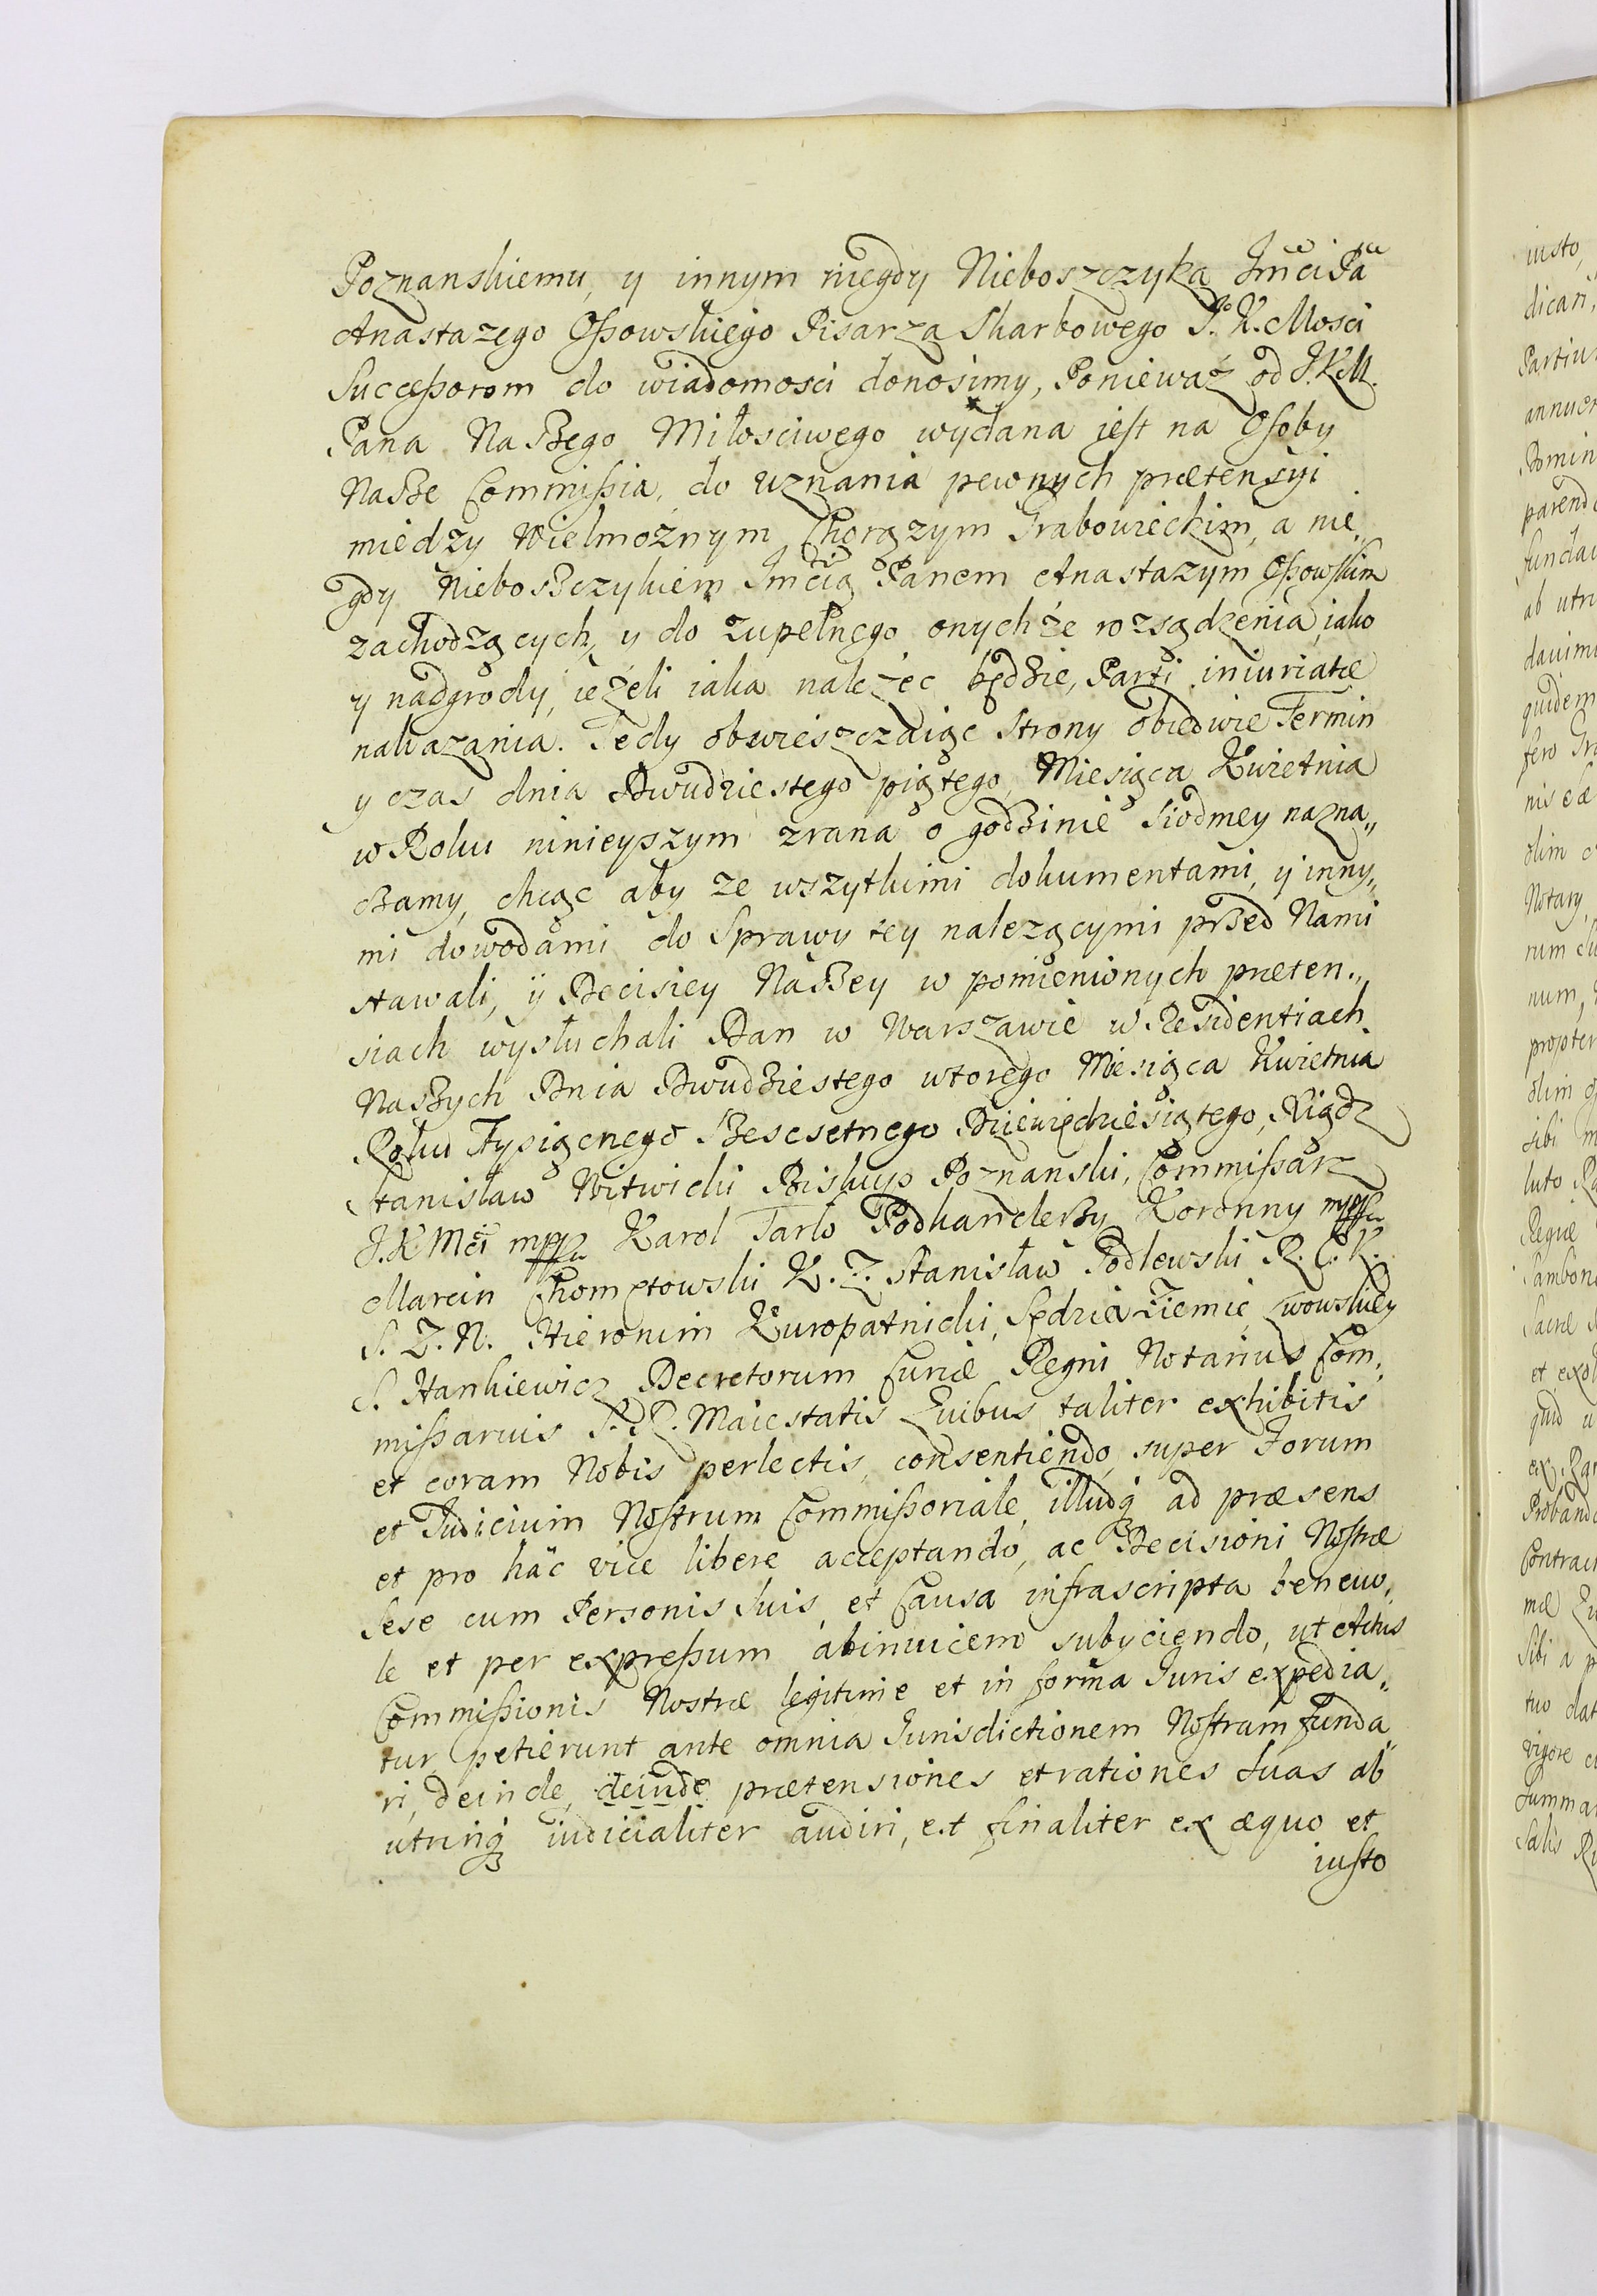 Poznanskiemu, y innym niegdy Nieboszczyka Jmci Pa
Anastazego Ossowskiego Pisarza Skarbowego J. K. Mosci
Successorom do wiadomosci donosimy, Poniewaź od J.K.M.
Pana Naszego Miłosciwego wydana iest na Osoby
Nasze Commissia, do uznania pewnych prætensyi
miedzy Wielmoźnym Chorązym Grabowieckim, a nie„
gdy Nieboszczykiem Jmcią Panem Anastazym Ossowskim
zachodzących, y do zupełnego onychźe rozsądzenia, iako
y nadgrody, ieźeli iaka naleźec będzie, Parti iniuriatæ
nakazania. Tedy obwieszczaiąc Strony obiedwie Termin
y czas dnia Dwudziestego piątego, Miesiąca Kwietnia
w Roku ninieyszym zrana o godzinie Siodmey nazna„
czamy, chcąc aby ze wszytkimi dokumentami, y inny„
mi dowodami do Sprawy tey nalezącymi przed Nami
stawali, y Decisiey Naszey w pomienionych præten„
siach wysłuchali Dan w Warszawie w Residentiach
Naszych Dnia Dwudziestego wtorego Miesiąca Kwietnia
Roku Tysiącnego Szescsetnego Dziewiędziesiątego, Xiądz
Stanisław Witwicki Biskup Poznanski, Commissarz
J.K Mci mppa Karol Tarło Podkanclerzy Koronny mppa
Marcin Chomętowski K. Z. Stanisław Podlewski R. C. K.
S. Z. N. Hieronim Kuropatnicki, Sędzia Ziemie Lwowskiey
S. Hankiewicz Decretorum Curiæ Regni Notarius Com„
missariis S. R. Maiestatis Quibus taliter exhibitis
et coram Nobis perlectis, consentiendo super Forum
et Judicium Nostrum Commissoriale, illudq ad præsens
et pro hac vice libere acceptando, ac Decisioni Nostræ
sese cum Personis Suis, et Causa infrascripta beneuo„
le et per expressum abinuicem subyciendo, ut Actus
Commissionis Nostræ legitime et in forma Juris expedia„
tur, petierunt ante omnia Jurisdictionem Nostram funda„
ri, deinde, deinde prætensiones et rationes suas ab
utrinq iudicialiter audiri, et finaliter ex æquo et
iusto
iusto,
dicari,
annuer
parend
ab utri
quidem
olim
Notary
num,
propter
olim
sibi
et
quid
Proband
Contra
sibi a p
tuo dat
vigore
Summa
Salis